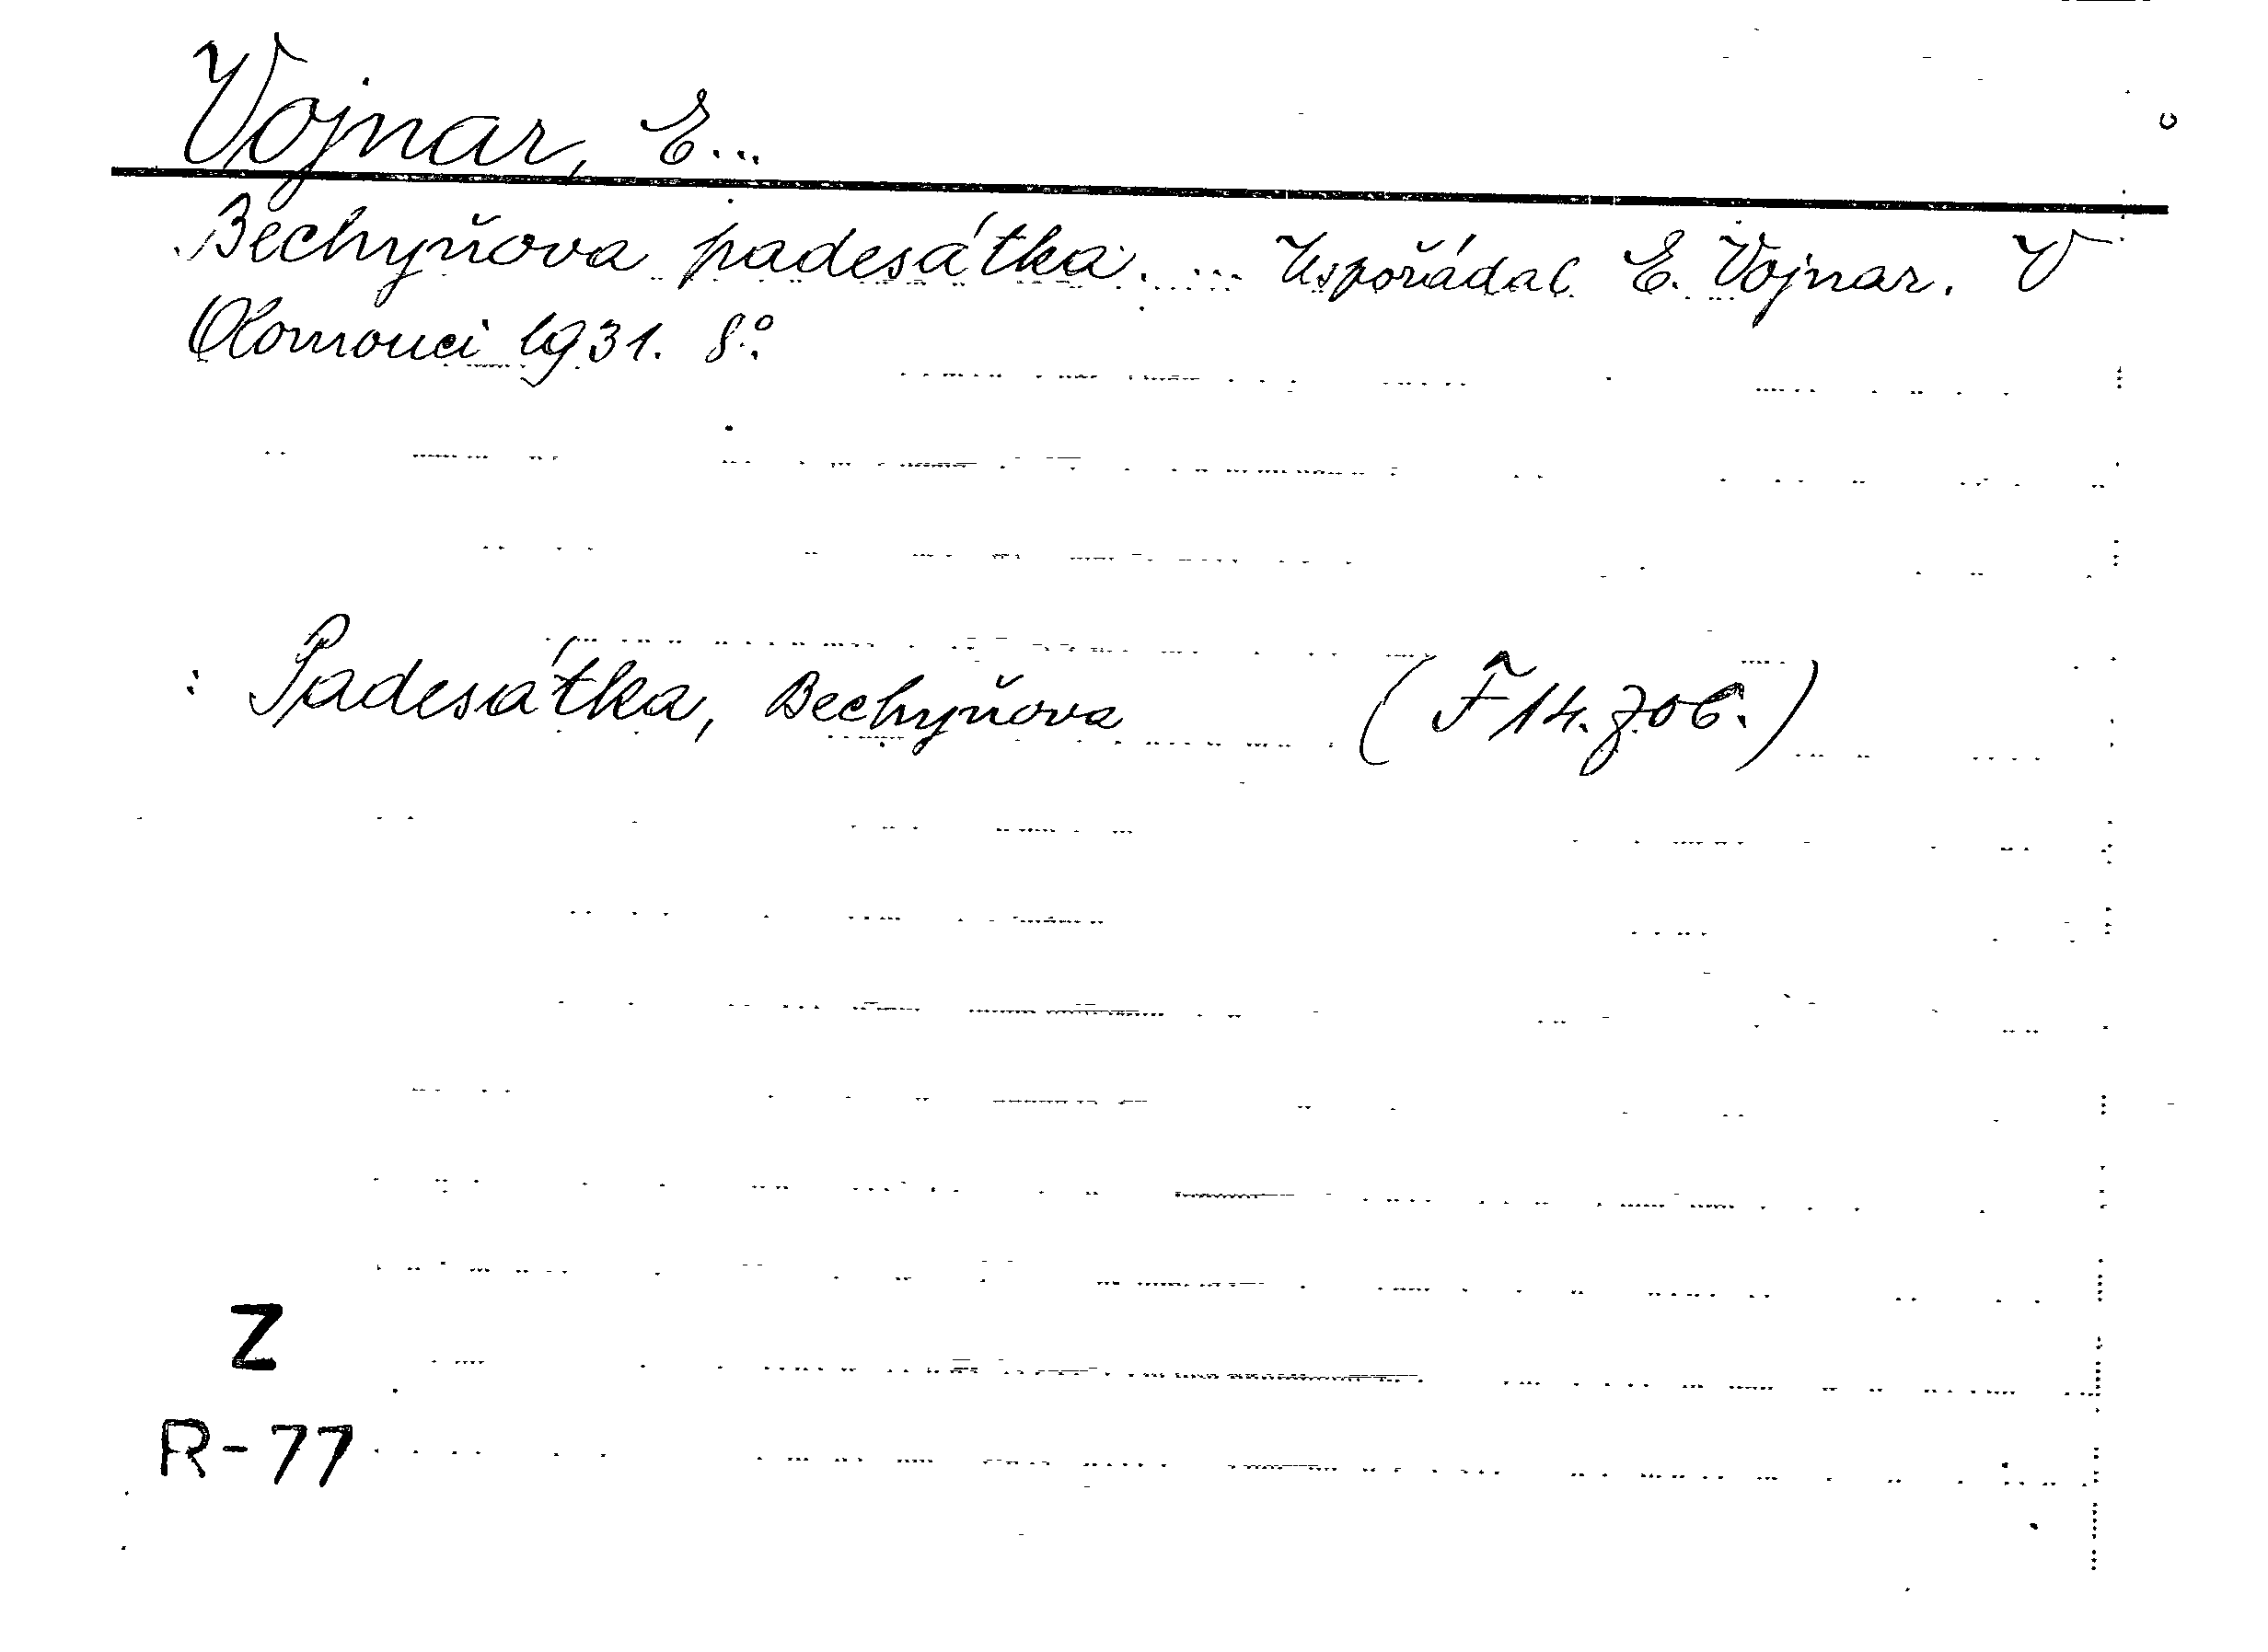 Vojnar, E...
Bechyňova padesátka. ... Uspořádal E. Vojnar. V
Olomouci 1931. 8°.
: Padesátka, Bechyňova
Z
R-77